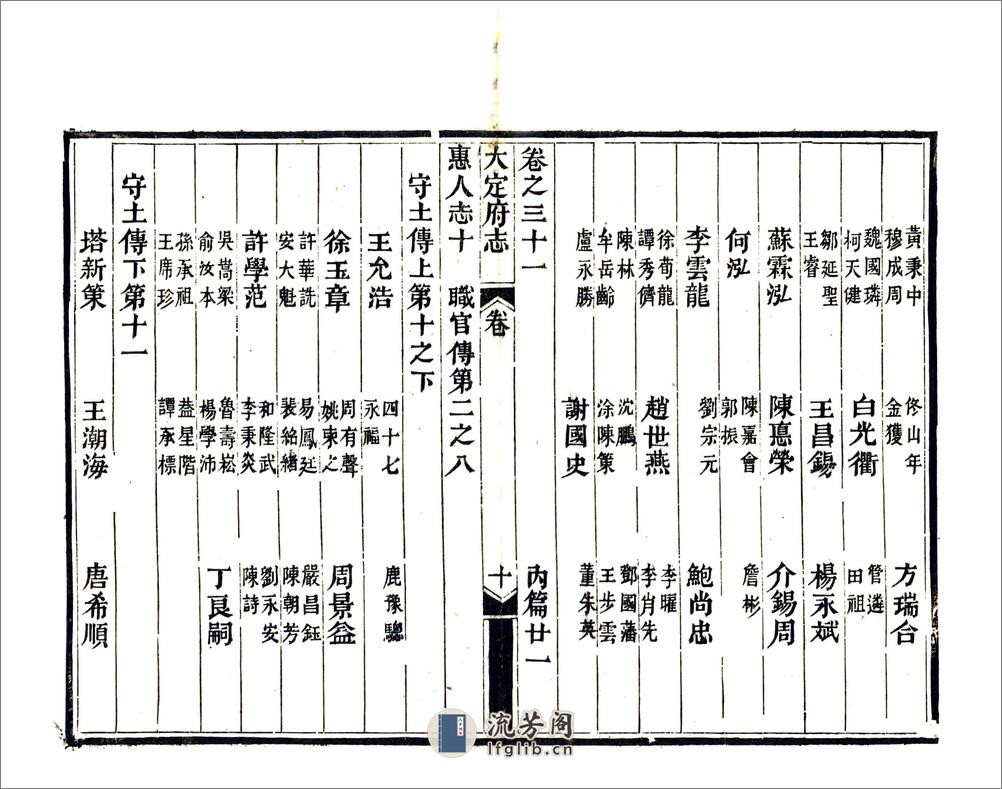 黃秉中 穆成周 佟山年 金獲 方瑞合
魏國璘 柯天健 白光衢 管遴 田祖
鄒延聖 王睿 王昌錫 楊永斌
蘇霖泓 陳悳榮 介錫周
何泓 陳嘉會 郭振 詹彬
李雲龍 劉宗元 鮑尚忠
徐荀龍 譚秀儕 趙世燕 李曜 李肖先
陳林 牟岳齡 沈鵬 涂陳策 鄧國藩 王步雲
盧永勝 謝國史 董朱英
卷之三十一 丙篇廿一
大定府志 卷 十
惠人志十 職官傳第二之八
守土傳上第十之下
王允浩 四十七 永福 鹿豫驄
徐玉章 周有聲 姚柬之 周景益
許華詵 安大魁 易鳳廷 裴 緒 嚴昌鈺 陳朝芳
許學范 和隆武 李秉炎 劉永安 陳詩
吳嵩梁 俞汝本 魯壽崧 楊學沛 丁良嗣
孫承祖 王席珍 益星階 譚承標
守土傳下第十一
塔新策 王潮海 唐希順
流芳阁
lfglib.cn